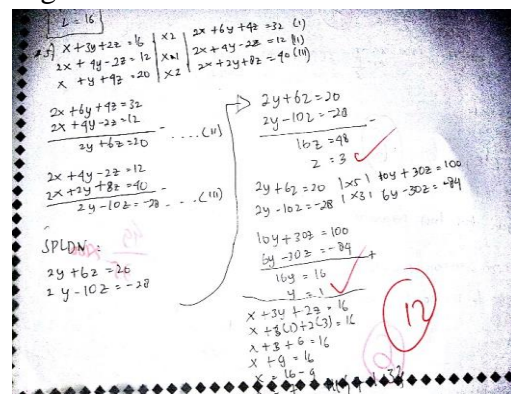 L = 16
25) x+3y+2z = 16 | x2 | 2x +6y +4z = 32 (I)
2x + 4y -2z = 12 | x1 | 2x +4y -2z = 12 (II)
x +y +4z = 20 | x2 | 2x +2y +8z = 40 (III)
2x +6y +4z = 32
2x +4y -2z = 12 -
2y +6z = 20 .....(II)
2x +4y -2z = 12
2x +2y +8z = 40 -
2y -10z = -28 ...(III)
SPLDV :
2y +6z = 20
2y -10z = -28
2y +6z = 20
2y -10z = -28 -
16z = 48
z = 3
2y +6z = 20 | x5 | 10y +30z = 100
2y -10z = -28 | x3 | 6y -30z = -84
10y +30z = 100
6y -30z = -84 +
16y = 16
y = 1
x +3y +2z = 16
x +3(1) +2(3) = 16
x +3 +6 = 16
x +9 = 16
x = 16 -9
12